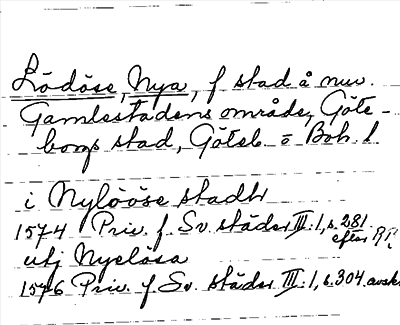 Lödöse, Nya, f stad å nuv.
Gamlestadens område, Göte-
borgs stad, Göteb. o Boh. l
i Nylööse stadh
1574 Priv. f. Sv. städer III:1, s. 281
efter RR
utj Nyelösa
1576 Priv. f. Sv. städer III:1, s. 304 avskr